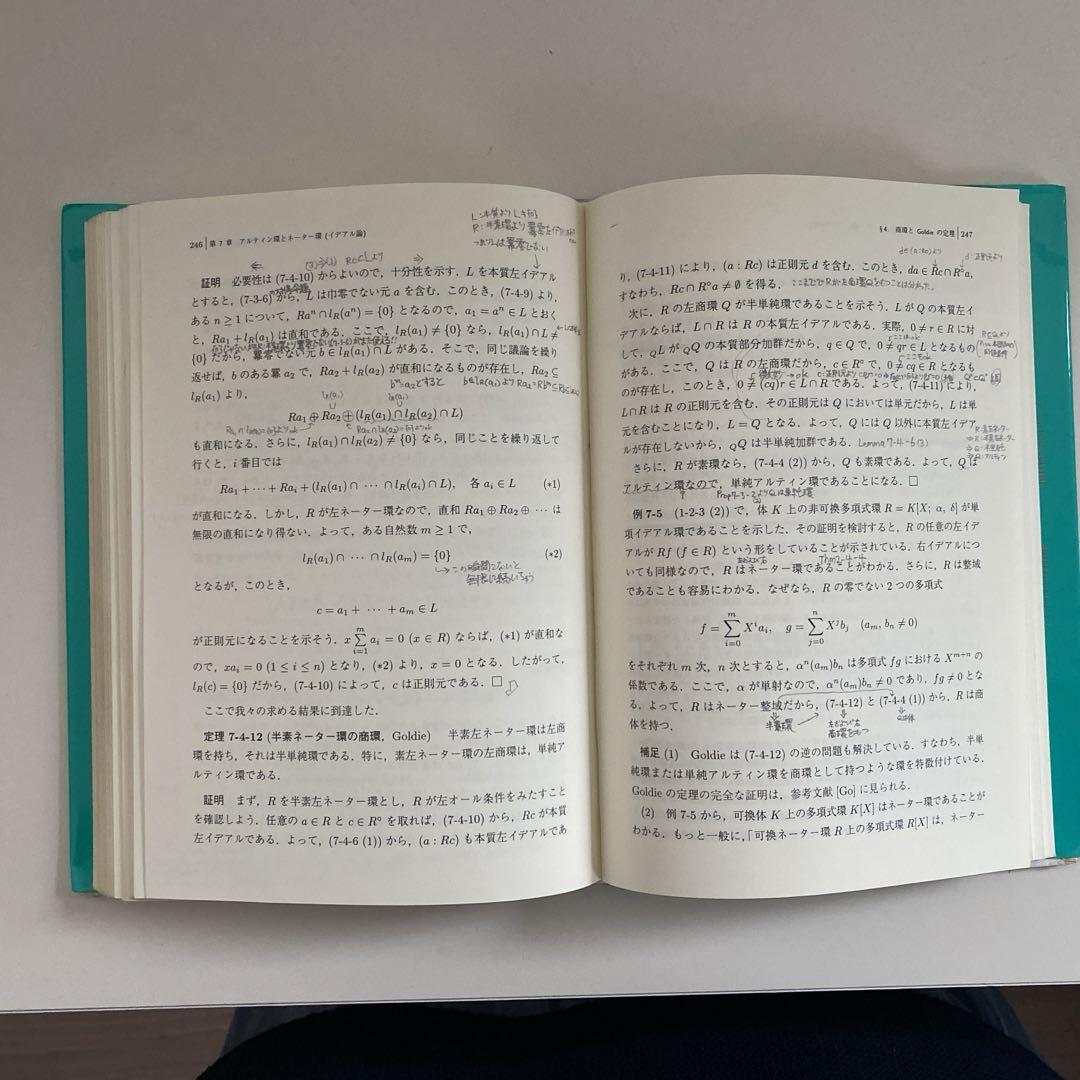 246 第 7 章 アルティン環とネーター環 (イデアル論)
L:本質より L≠{0}
証明 必要性は (7-4-10) からよいので,十分性を示す.L を本質左イデアル
とすると,(7-3-6) から,L は巾零でない元 a を含む.このとき,(7-4-9) より,
ある n ≥ 1 について,Raⁿ ∩ l_R(aⁿ) = {0} となるので,a₁ = aⁿ ∈ L とおく
と,Ra₁ + l_R(a₁) は直和である.ここで,l_R(a₁) ≠ {0} なら,l_R(a₁) ∩ L ≠
{0} だから,冪零でない元 b ∈ l_R(a₁) ∩ L がある.そこで,同じ議論を繰り
返せば,b のある冪 a₂ で,Ra₂ + l_R(a₂) が直和になるものが存在し,Ra₂ ⊆
l_R(a₁) より,
bᵐ=a₂とすると
Ra₁ ⊕ Ra₂ ⊕ (l_R(a₁) ∩ l_R(a₂) ∩ L)
も直和になる.さらに,l_R(a₁) ∩ l_R(a₂) ≠ {0} なら,同じことを繰り返して
行くと,i 番目では
Ra₁ + ··· + Ra_i + (l_R(a₁) ∩ ··· ∩ l_R(a_i) ∩ L), 各 a_i ∈ L (*1)
が直和になる.しかし,R が左ネーター環なので,直和 Ra₁ ⊕ Ra₂ ⊕ ··· は
無限の直和になり得ない.よって,ある自然数 m ≥ 1 で,
l_R(a₁) ∩ ··· ∩ l_R(a_m) = {0} (*2)
となるが,このとき,
c = a₁ + ··· + a_m ∈ L
が正則元になることを示そう.x∑_{i=1}^{m} a_i = 0 (x ∈ R) ならば,(*1) が直和な
ので,xa_i = 0 (1 ≤ i ≤ n) となり,(*2) より,x = 0 となる.したがって,
l_R(c) = {0} だから,(7-4-10) によって,c は正則元である.□
ここで我々の求める結果に到達した.
定理 7-4-12 (半素ネーター環の商環,Goldie) 半素左ネーター環は左商
環を持ち,それは半単純環である.特に,素左ネーター環の左商環は,単純ア
ルティン環である.
証明 まず,R を半素左ネーター環とし,R が左オール条件をみたすこと
を確認しよう.任意の a ∈ R と c ∈ R° を取れば,(7-4-10) から,Rc が本質
左イデアルである.よって,(7-4-6 (1)) から,(a : Rc) も本質左イデアルであ
§4. 商環と Goldie の定理 247
り,(7-4-11) により,(a : Rc) は正則元 d を含む.このとき,da ∈ Rc ∩ R°a,
すなわち,Rc ∩ R°a ≠ ∅ を得る.
次に,R の左商環 Q が半単純環であることを示そう.L が Q の本質左イ
デアルならば,L ∩ R は R の本質左イデアルである.実際,0 ≠ r ∈ R に対
して,_QL が _QQ の本質部分加群だから,q ∈ Q で,0 ≠ qr ∈ L となるもの
がある.ここで,Q は R の左商環だから,c ∈ R° で,0 ≠ cq ∈ R となるもの
が存在し,このとき,0 ≠ (cq)r ∈ L ∩ R である.よって,(7-4-11) により,
L ∩ R は R の正則元を含む.その正則元は Q においては単元だから,L は単
元を含むことになり,L = Q となる.よって,Q には Q 以外に本質左イデア
ルが存在しないから,_QQ は半単純加群である.Lemma 7-4-6(3)
さらに,R が素環なら,(7-4-4 (2)) から,Q も素環である.よって,Q は
アルティン環なので,単純アルティン環であることになる.□
例 7-5 (1-2-3 (2)) で,体 K 上の非可換多項式環 R = K[X; α, δ] が単
項イデアル環であることを示した.その証明を検討すると,R の任意の左イデ
アルが Rf (f ∈ R) という形をしていることが示されている.右イデアルにつ
いても同様なので,R はネーター環であることがわかる.さらに,R は整域
であることも容易にわかる.なぜなら,R の零でない 2 つの多項式
f = ∑_{i=0}^{m} Xⁱa_i, g = ∑_{j=0}^{n} Xʲb_j (a_m, b_n ≠ 0)
をそれぞれ m 次,n 次とすると,αⁿ(a_m)b_n は多項式 fg における Xᵐ⁺ⁿ の
係数である.ここで,α が単射なので,αⁿ(a_m)b_n ≠ 0 であり,fg ≠ 0 とな
る.よって,R はネーター整域だから,(7-4-12) と (7-4-4 (1)) から,R は商
体を持つ.
半素環
補足 (1) Goldie は (7-4-12) の逆の問題も解決している.すなわち,半単
純環または単純アルティン環を商環として持つような環を特徴付けている.
Goldie の定理の完全な証明は,参考文献 [Go] に見られる.
(2) 例 7-5 から,可換体 K 上の多項式環 K[X] はネーター環であることが
わかる.もっと一般に,「可換ネーター環 R 上の多項式環 R[X] は,ネーター